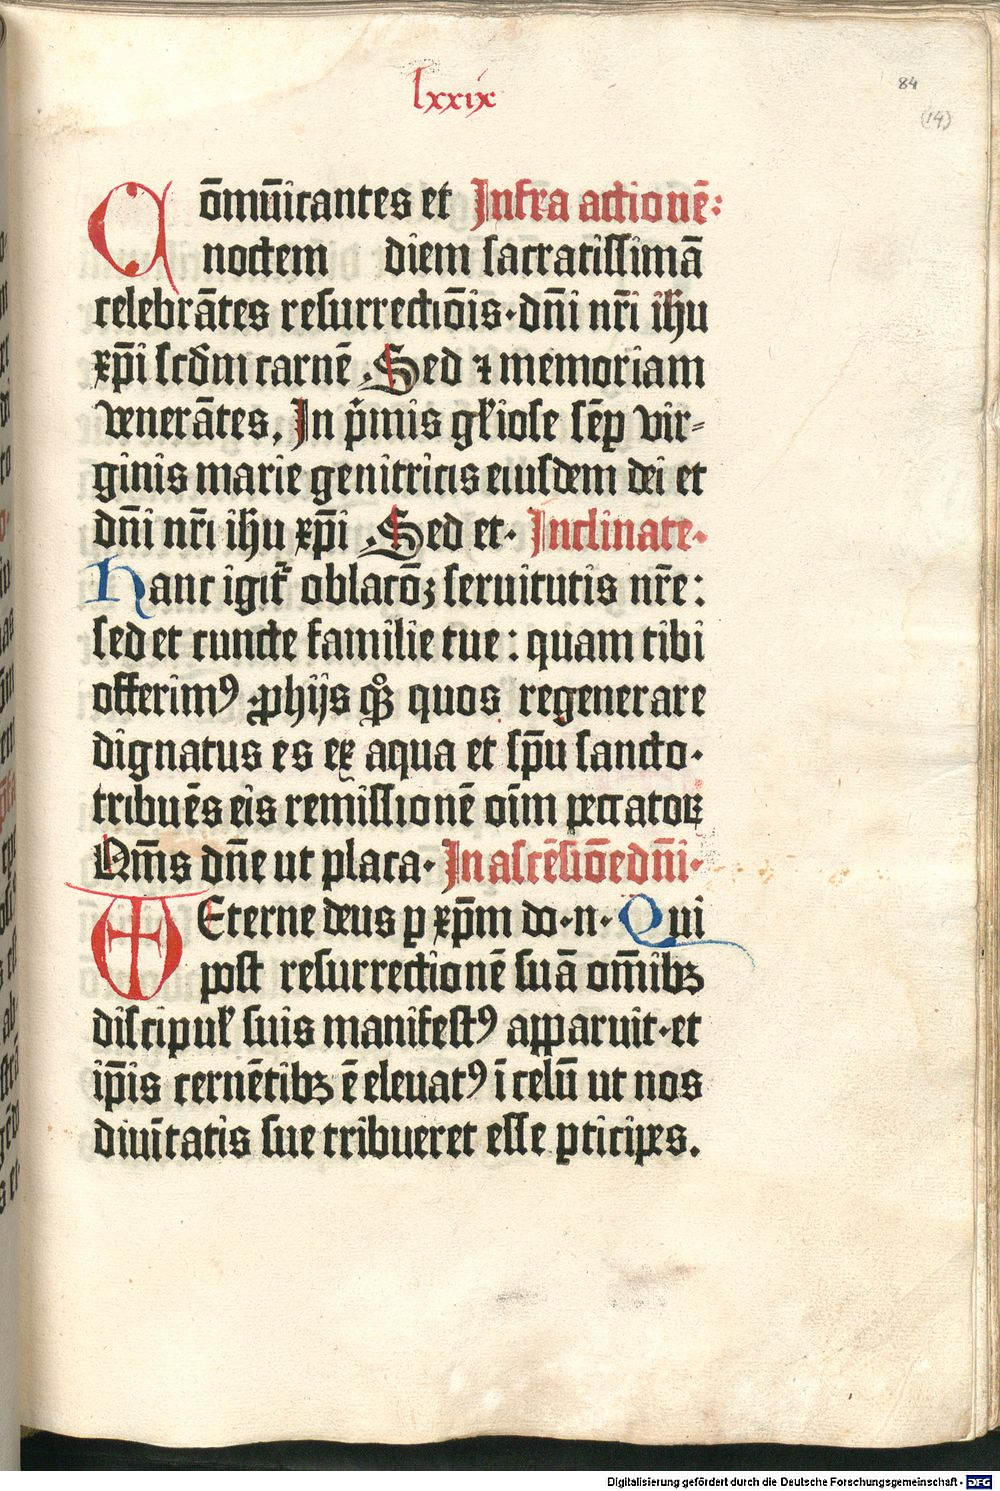 lxxix
84
(14)
Cōmūicantes et Infra actionē:
noctem diem sacratissimā
celebrātes resurrectiōis·dn̄i nr̄i ih̄u
xp̄i scd̄m carnē Sed ⁊ memoriam
venerātes. In p̄mis gl̄iose sēꝑ vir-
ginis marie genitricis eiusdem dei et
dn̄i nr̄i ih̄u xp̄i Sed et· Inclinate·
Hanc igit̄ oblatōꝫ seruitutis nr̄e:
sed et cuncte familie tue: quam tibi
offerimꝰ ꝓhijs qꝫ̊ quos regenerare
dignatus es ex aqua et sp̄u sancto·
tribuēs eis remissionē oīm peccatoꝝ
Qm̄s dn̄e ut placa· In ascēsiōe dn̄i·
Eterne deus ꝑ xp̄m do·n· Qui
post resurrectionē suā om̄ibꝫ
discipul̄ suis manifestꝰ apparuit·et
ip̄is cernētibꝫ ē eleuatꝰ ī celū ut nos
diuītatis sue tribueret esse ꝑticipes.
Digitalisierung gefördert durch die Deutsche Forschungsgemeinschaft - DFG